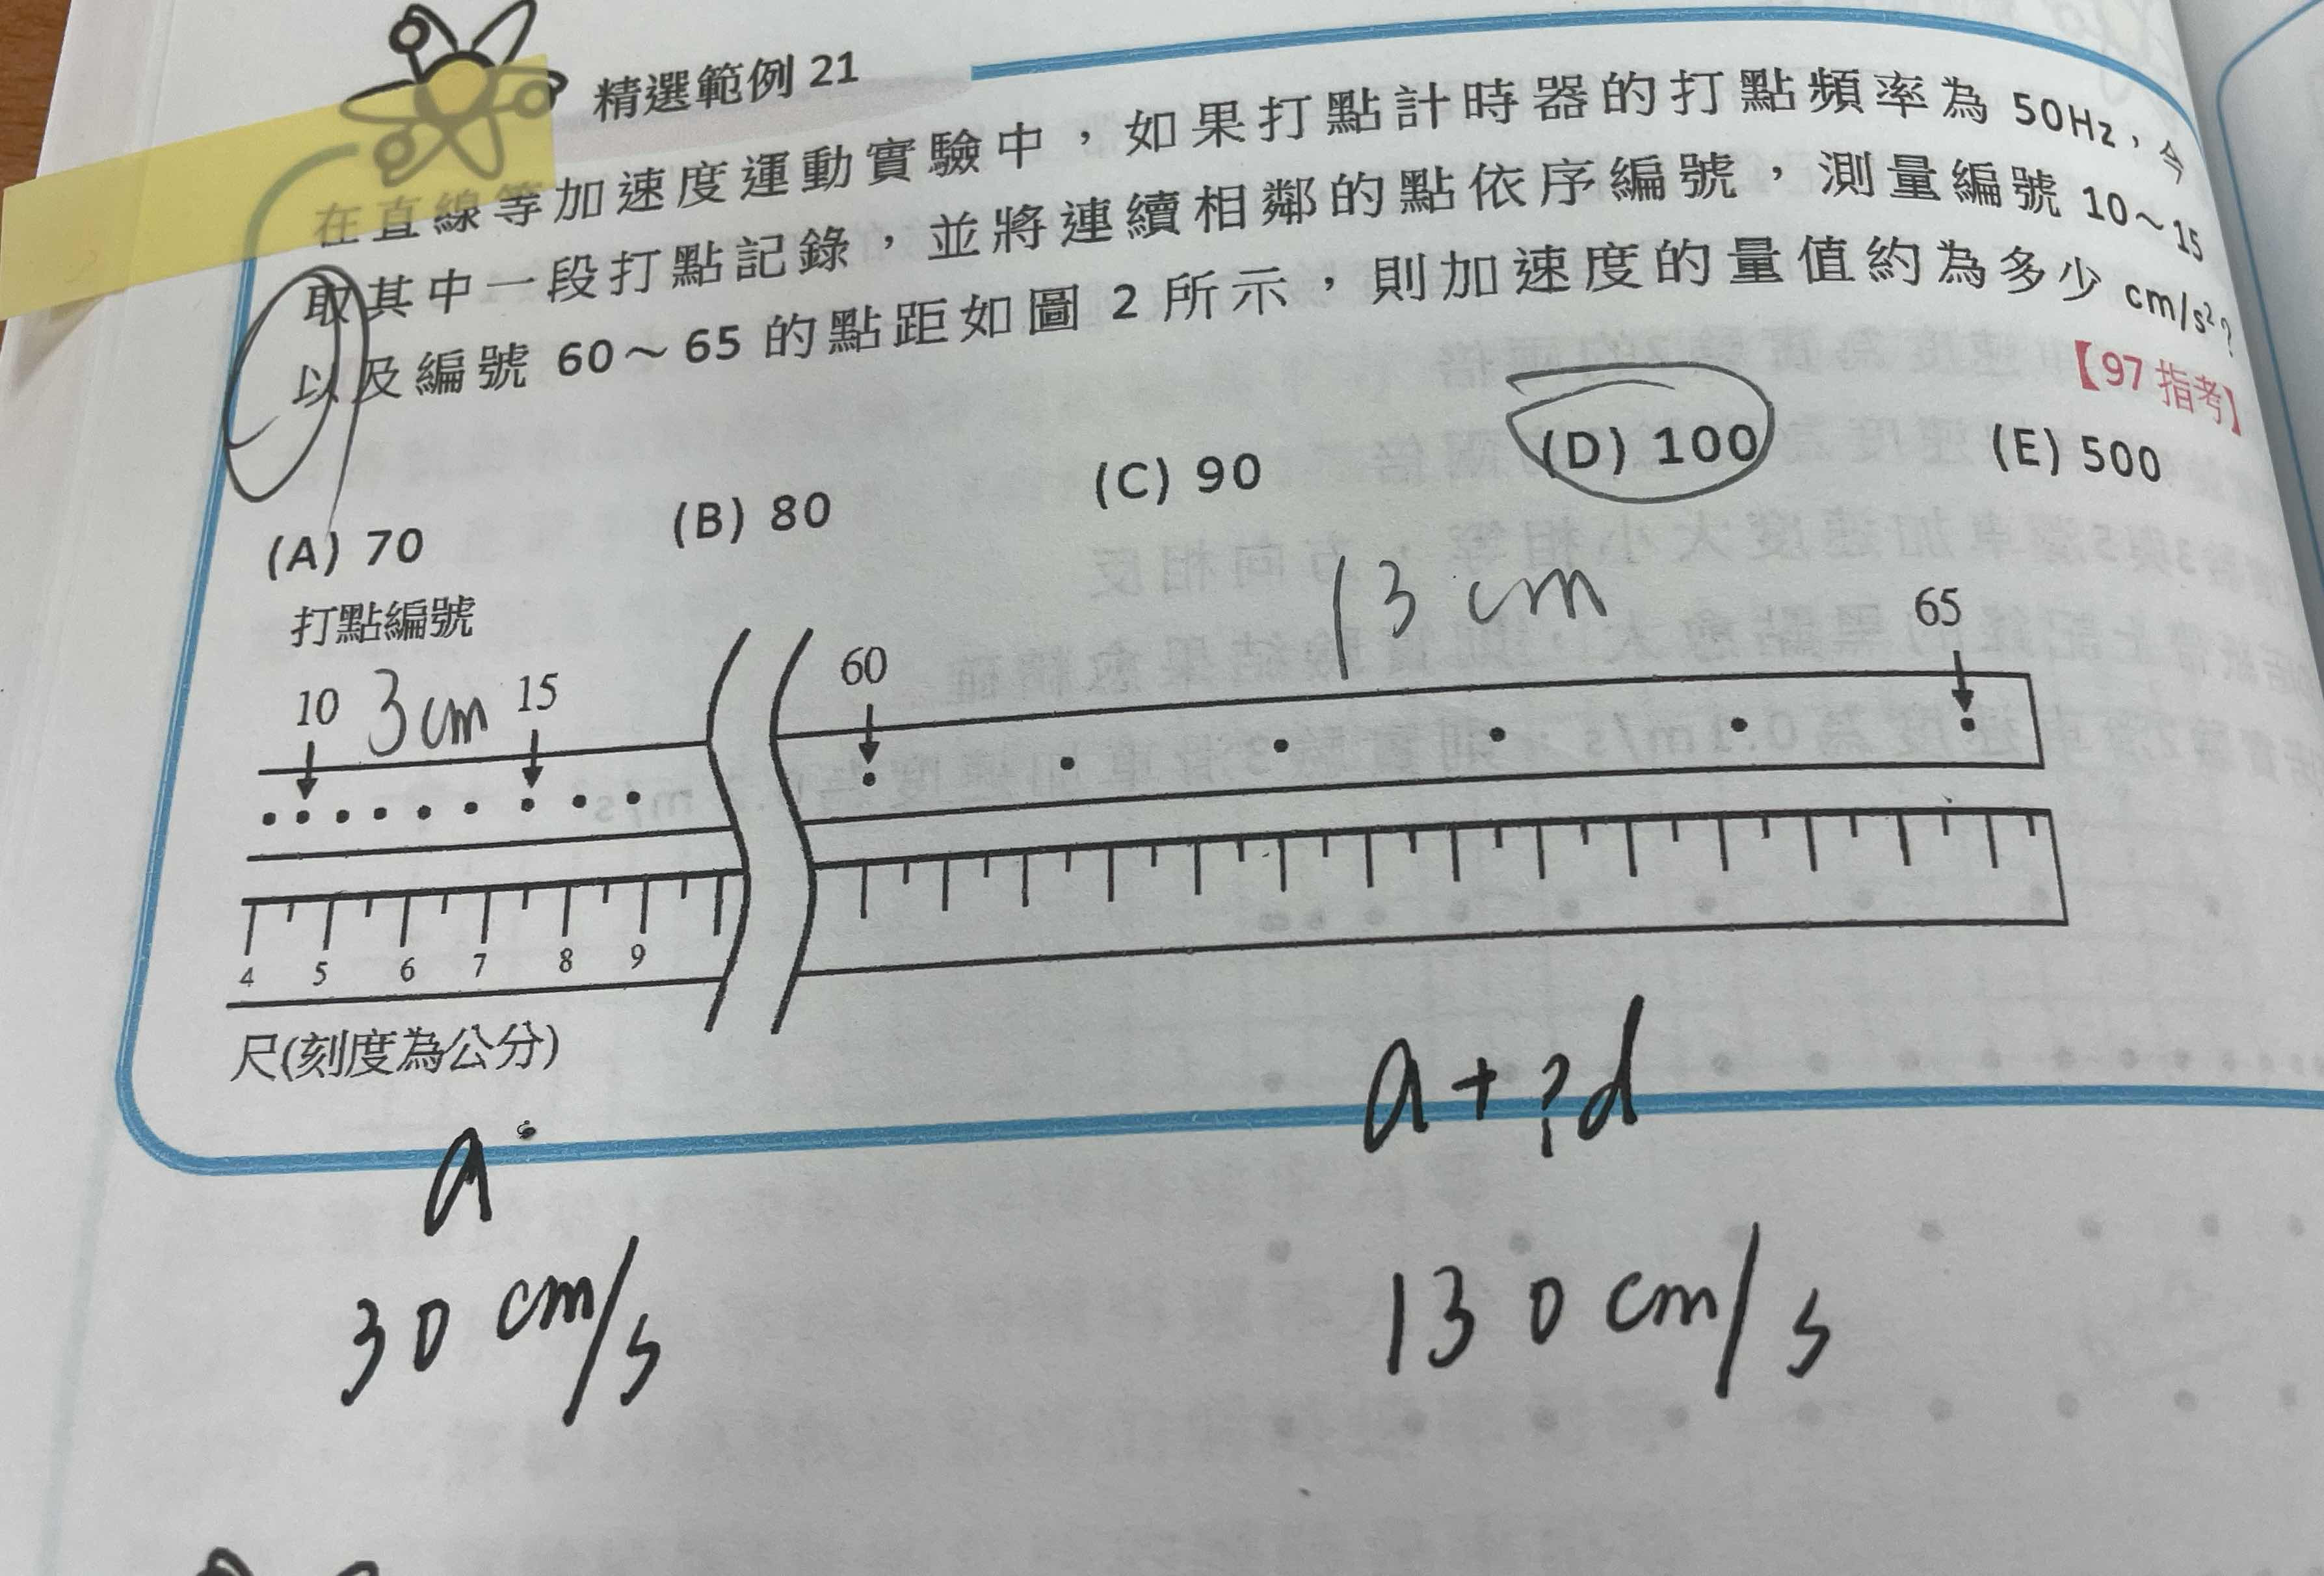 精選範例 21
在直線等加速度運動實驗中，如果打點計時器的打點頻率為 50Hz，今
取其中一段打點記錄，並將連續相鄰的點依序編號，測量編號 10～15
以及編號 60～65 的點距如圖 2 所示，則加速度的量值約為多少 cm/s²？
【97 指考】
(A) 70 (B) 80 (C) 90 (D) 100 (E) 500
打點編號
13 cm
10 3cm 15 60 65
4 5 6 7 8 9
尺(刻度為公分)
a a+?d
30 cm/s 130 cm/s